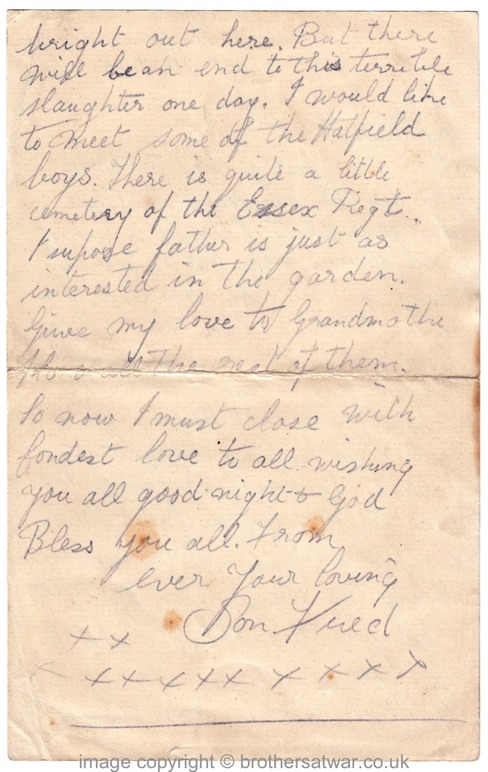 bright out here. But there
will be an end to this terrible
slaughter one day. I would like
to meet some of the Hatfield
boys. There is quite a little
cemetery of the Essex Regt.
I supose father is just as
interested in the garden.
Give my love to Grandmothe
the rest of them.
So now I must close with
fondest love to all wishing
you all good night & God
Bless you all. From
ever Your loving
Son Fred
x x
x x x x x x x x x x
image copyright © brothersatwar.co.uk